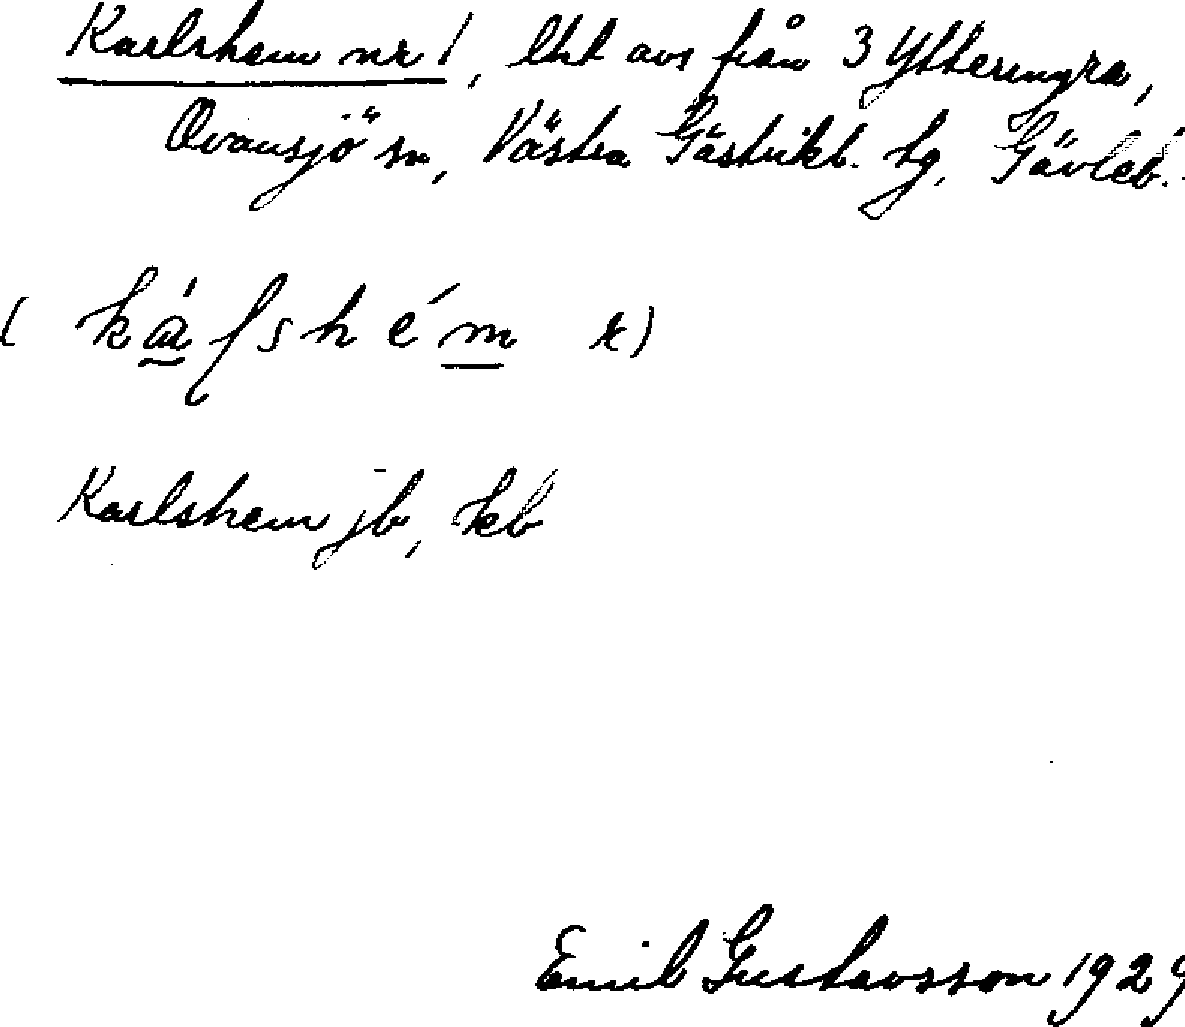 Karlshem nr 1, lht avs från 3 Ytteryngra,
Ovansjö sn, Västra Gästrikl. tg, Gävleb.
Karlshem jb, kb
Emil Gustavsson 1929